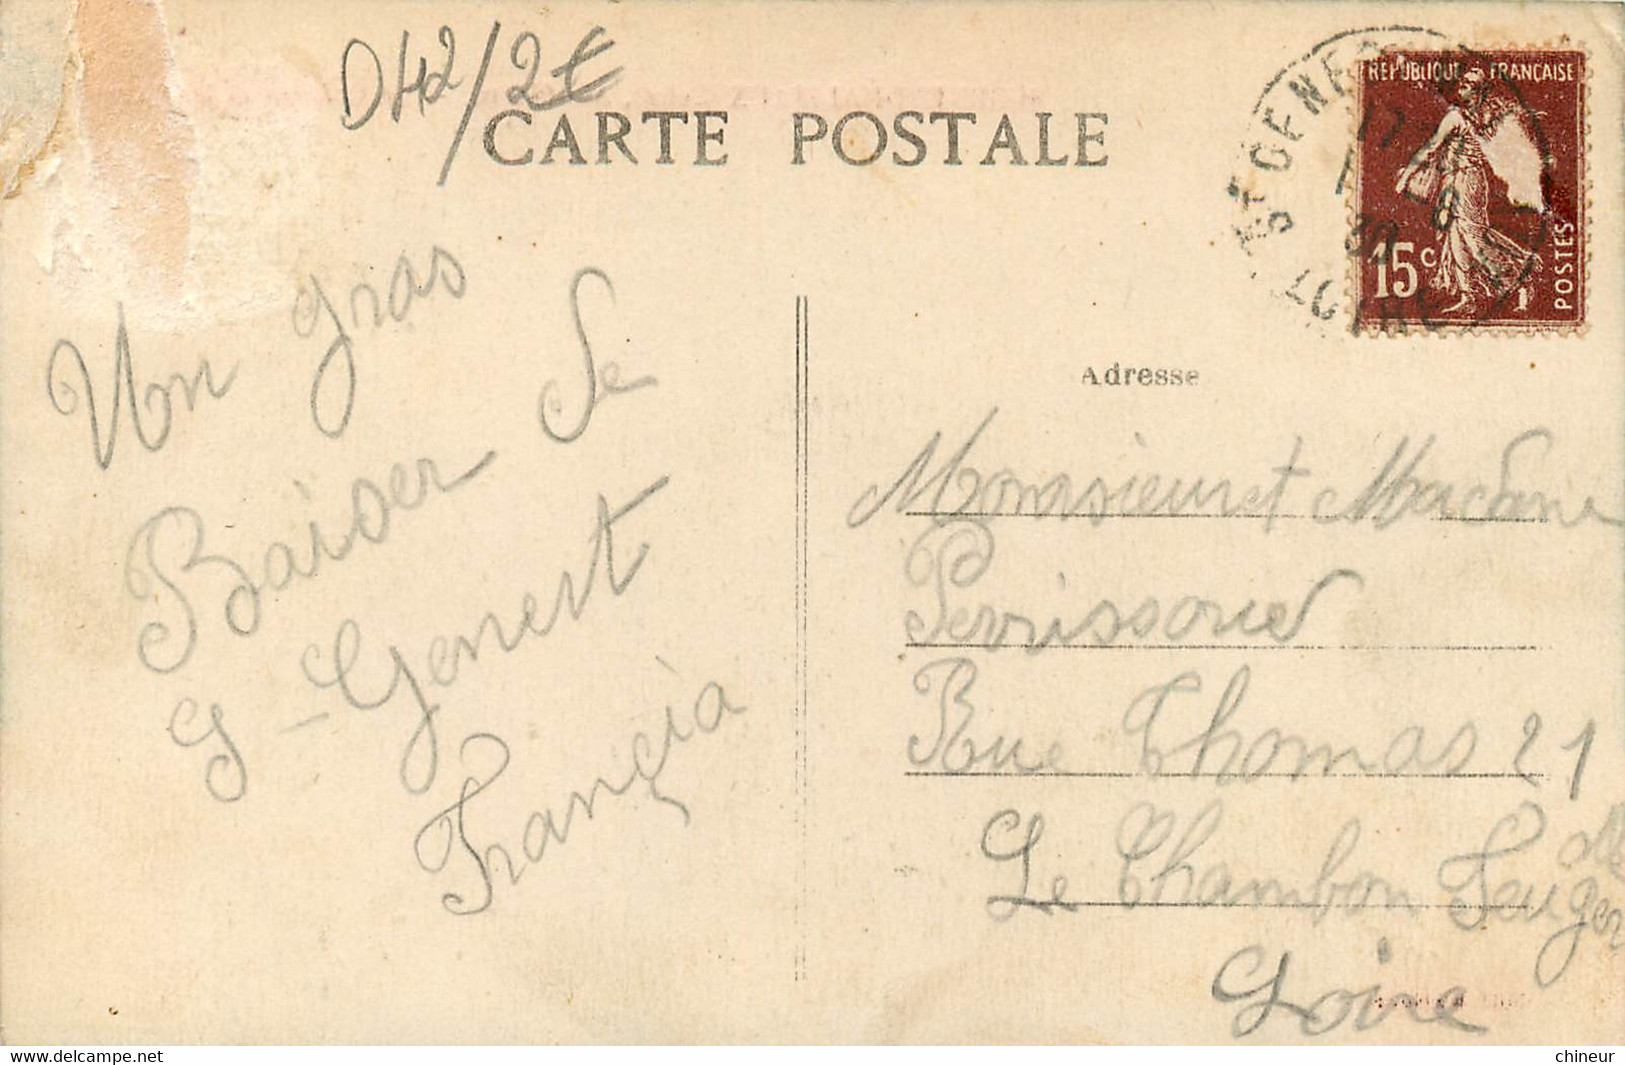 D42/2€
CARTE POSTALE
REPUBLIQUE FRANÇAISE
15c
POSTES
Un gras
Baiser de
S-Genest
Françia
Adresse
Monsieur et Madame
Perrissoud
Rue Thomas 21
Le Chambon Feugerolle
Loire
www.delcampe.net
chineur